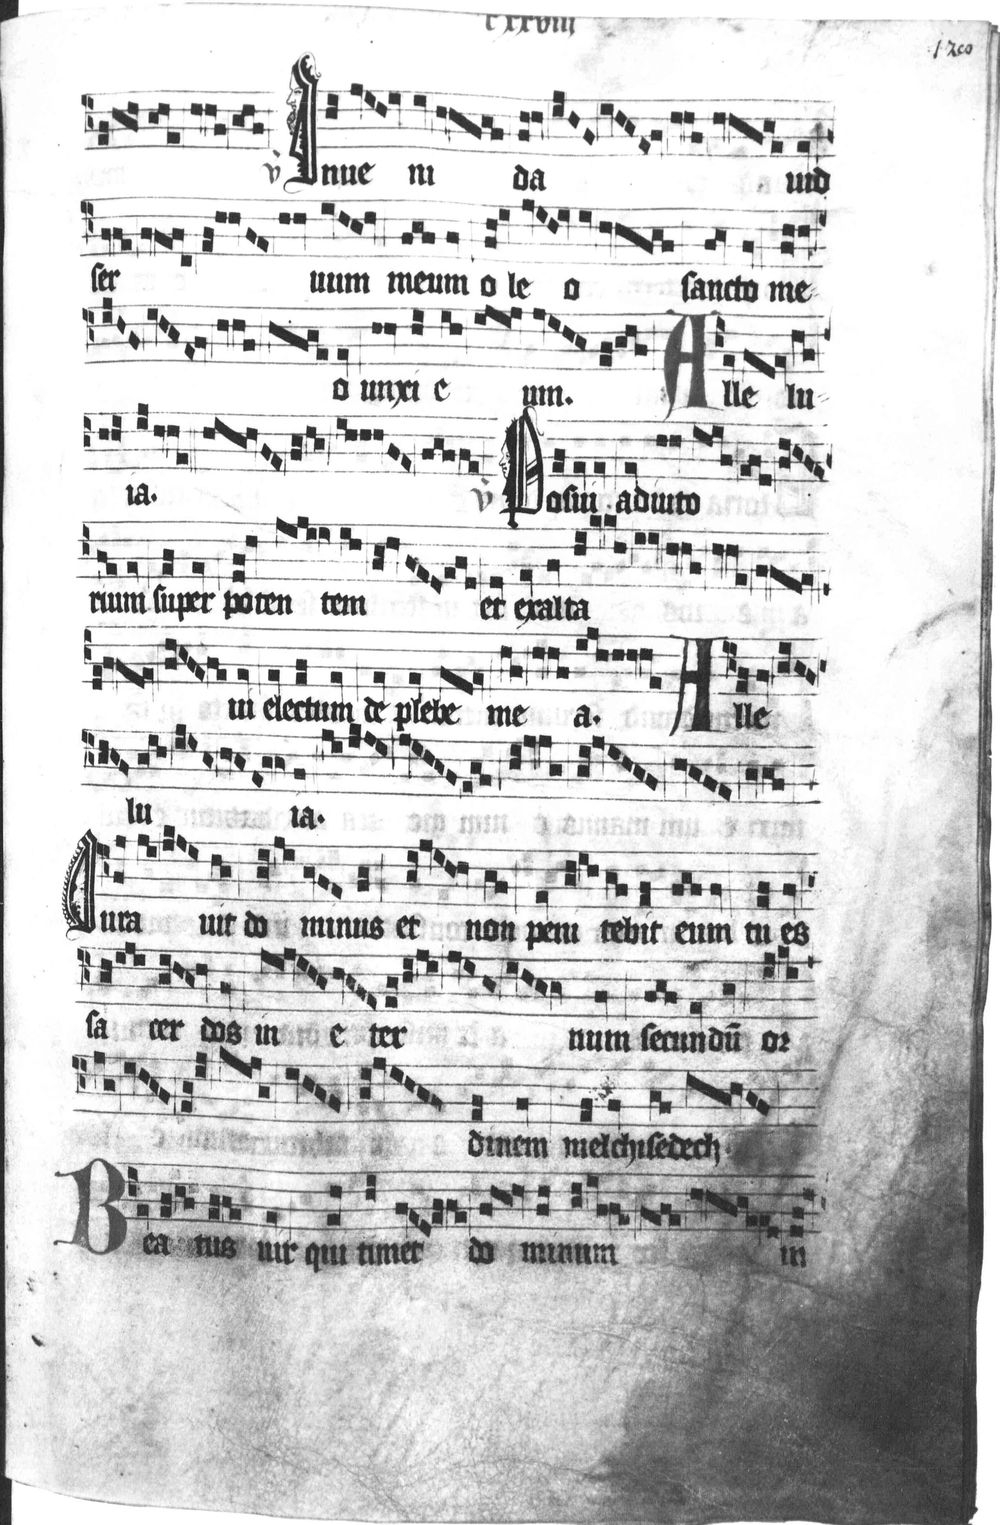 cxxviii
128
v̉ Inue ni da uid
ser uum meum o le o sancto me
o unxi e um. Alle lu
ia. v̉ Posui adiuto
rium super poten tem et exalta
ui electum de plebe me a. Alle
lu ia.
Iura uit do minus et non peni tebit eum tu es
sa cer dos in e ter num secundū or
dinem melchisedech.
Bea tus uir qui timet do minum in